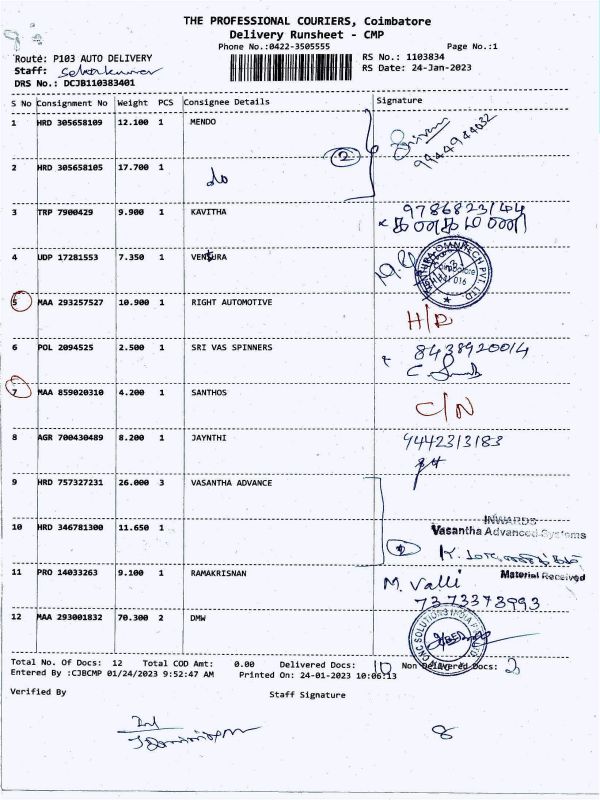 THE PROFESSIONAL COURIERS, Coimbatore
Delivery Runsheet - CMP
Phone No.:0422-3505555 Page No.:1
Route: P103 AUTO DELIVERY RS No.: 1103834
Staff: RS Date: 24-Jan-2023
DRS No.: DCJB110383401
S No Consignment No Weight PCS Consignee Details Signature
1 HRD 305658109 12.100 1 MENDO
9444944032
2
2 HRD 305658105 17.700 1 do
3 TRP 7900429 9.900 1 KAVITHA 9786823144
4 UDP 17281553 7.350 1 VENTURA
5 MAA 293257527 10.900 1 RIGHT AUTOMOTIVE H/D
6 POL 2094525 2.500 1 SRI VAS SPINNERS 8438920014
7 MAA 859020310 4.200 1 SANTHOS C/N
8 AGR 700430489 8.200 1 JAYNTHI 9442313183
9 HRD 757327231 26.000 3 VASANTHA ADVANCE
INWARDS
Vasantha Advanced Systems
10 HRD 346781300 11.650 1
Material Received
11 PRO 14033263 9.100 1 RAMAKRISNAN M. Valli
7373373993
12 MAA 293001832 70.300 2 DMW
Total No. Of Docs: 12 Total COD Amt: 0.00 Delivered Docs: 10 Non Delivered Docs: 2
Entered By :CJBCMP 01/24/2023 9:52:47 AM Printed On: 24-01-2023 10:06:13
Verified By Staff Signature
8